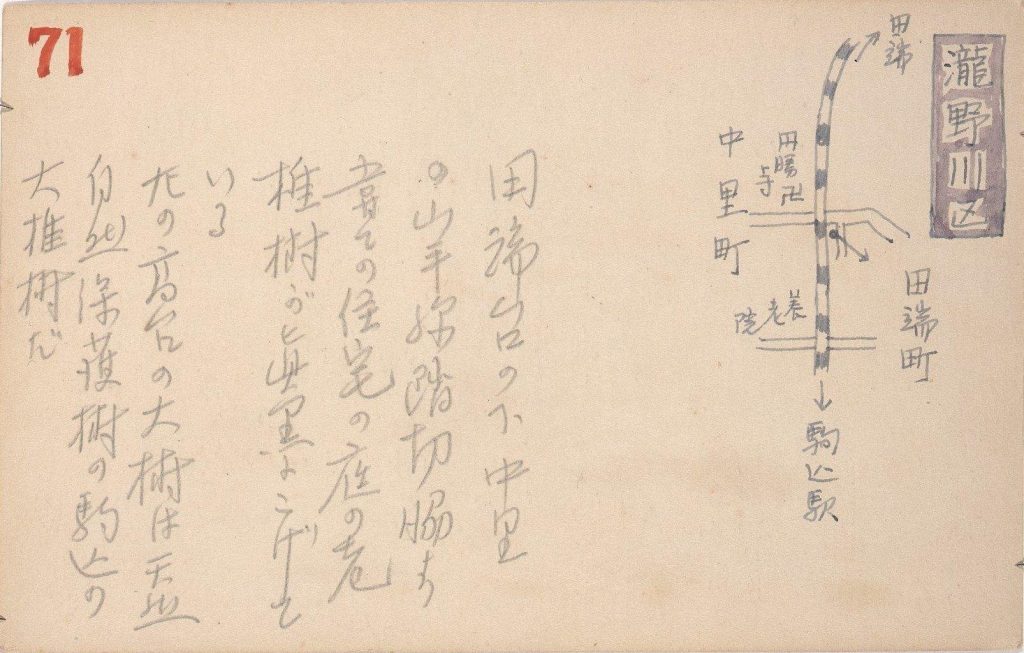 71
瀧野川区
田端
円勝寺卍
中里町
田端町
養老院
駒込駅
田端台の下中里
の山手線踏切脇も
昔ての住宅の庭の老
椎樹が真黒にこげて
いる
左の高台の大樹は天然
自然保護樹の駒込の
大椎樹だ